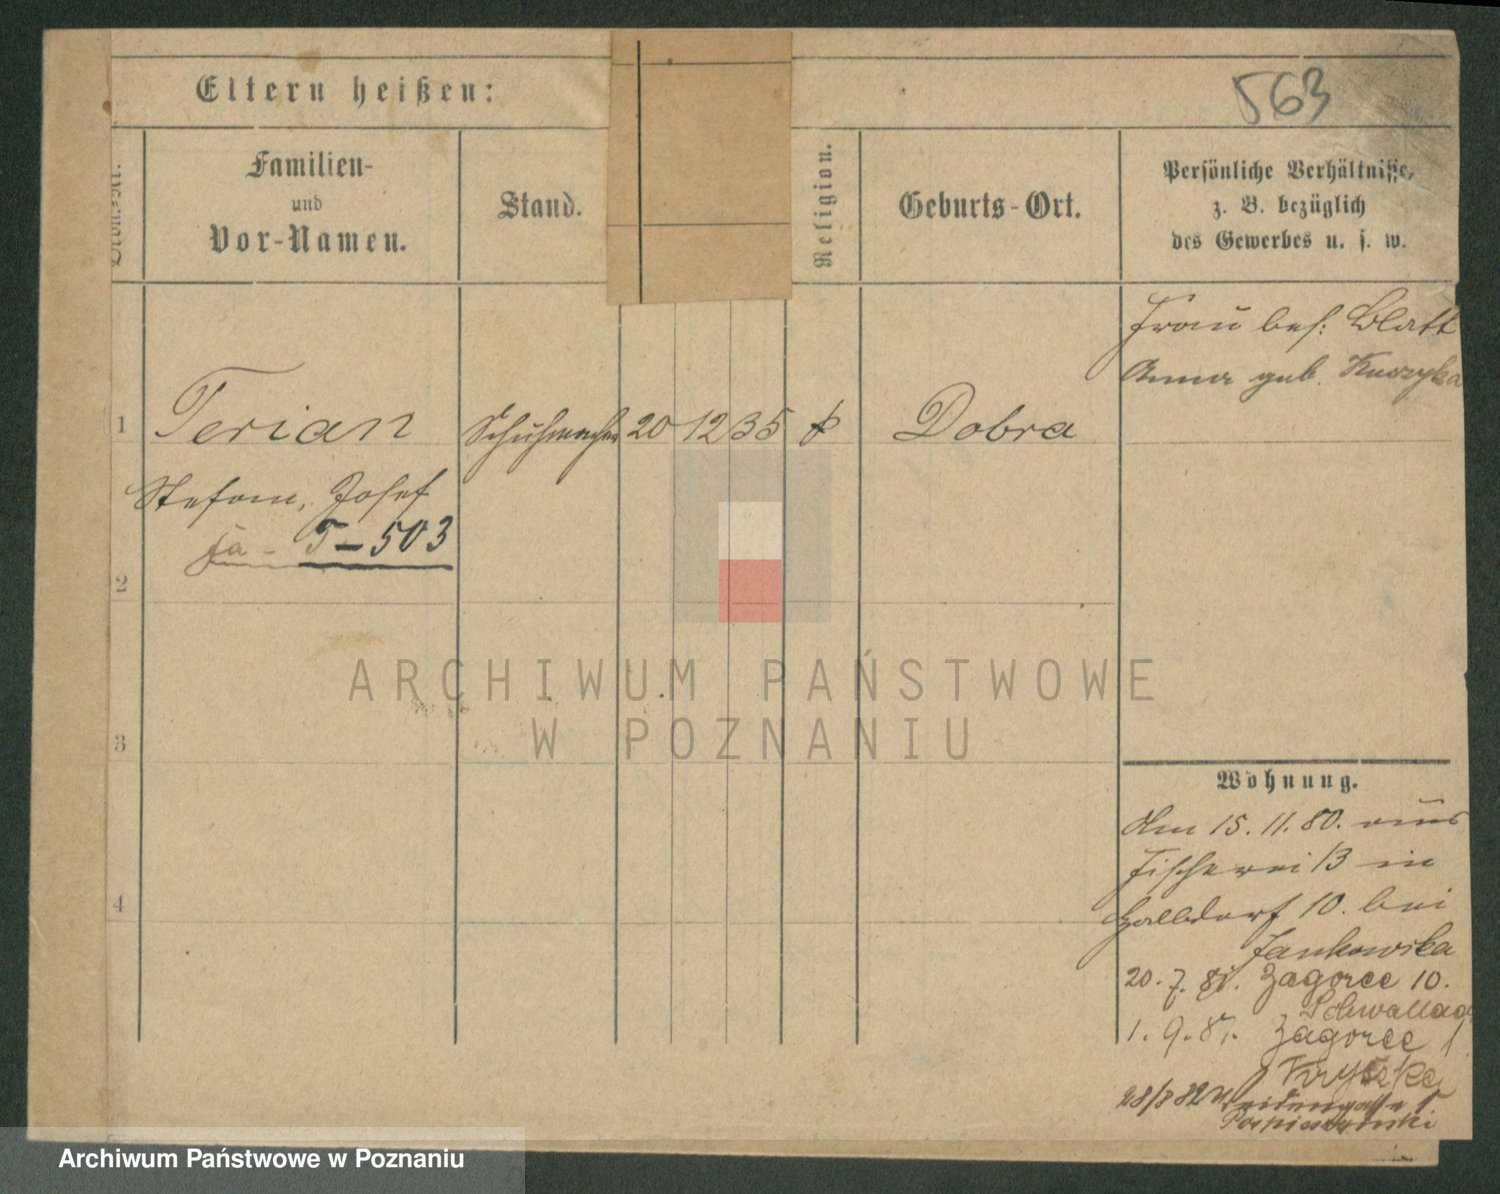 Eltern heißen:
563
Familien-
und
Vor-Namen.
Stand.
Religion.
Geburts-Ort.
Persönliche Verhältnisse,
z. B. bezüglich
des Gewerbes u. s. w.
Frau bes: Blatt
Anna geb.
1 Terian Schuhmacher 20 12 35 k Dobra
Stefan, Josef
ja - T-503
2
3
4
ARCHIWUM PAŃSTWOWE
W POZNANIU
Wohnung.
Am 15. 11. 80. aus
Fischerei 13 in
Halbdorf 10. bei
Jankowska
20. 7. 81. Zagorce 10.
1. 9. 81. Zagorce 1
28/8 82 Weidengasse
Archiwum Państwowe w Poznaniu